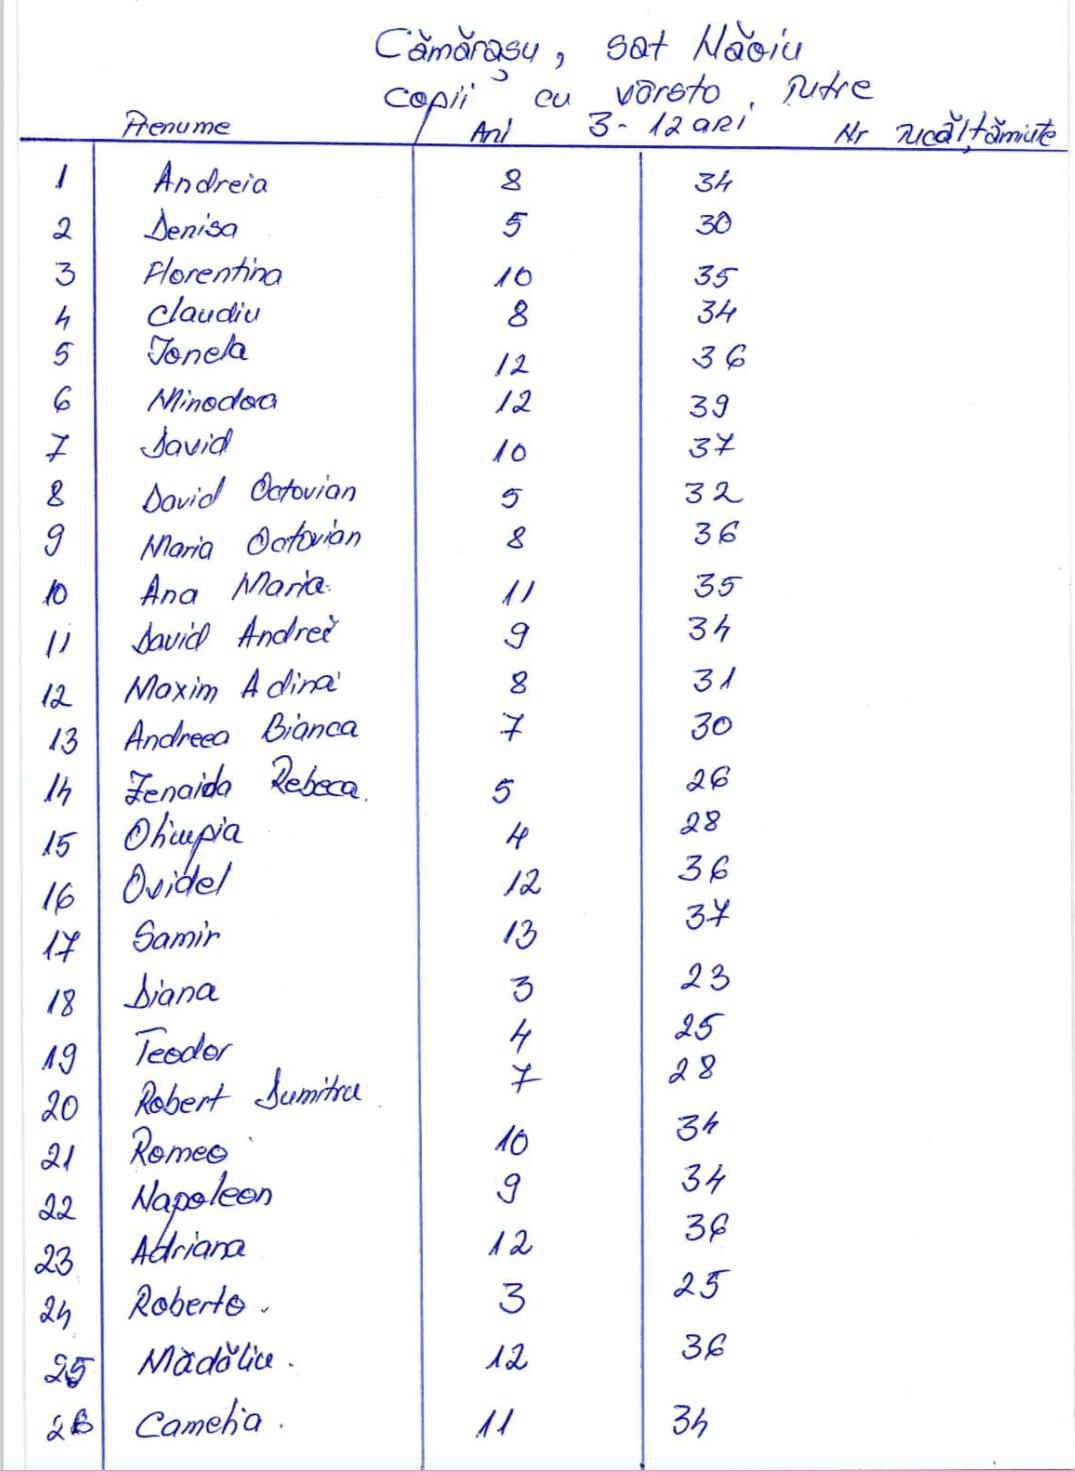 Cămărașu, sat Năoiu
copii cu vârsta între
3-12 ani
Prenume Ani Nr încălțăminte
1 Andreia 8 34
2 Denisa 5 30
3 Florentina 10 35
4 Claudiu 8 34
5 Ionela 12 36
6 Minodora 12 39
7 David 10 37
8 David Octavian 5 32
9 Maria Octavian 8 36
10 Ana Maria 11 35
11 David Andrei 9 34
12 Maxim Adina 8 31
13 Andreea Bianca 7 30
14 Zenaida Rebeca. 5 26
15 Olimpia 4 28
16 Ovidel 12 36
17 Samir 13 37
18 Diana 3 23
19 Teodor 4 25
20 Robert Dumitru 7 28
21 Romeo 10 34
22 Napoleon 9 34
23 Adriana 12 36
24 Roberto. 3 25
25 Mădălin. 12 36
26 Camelia. 11 34